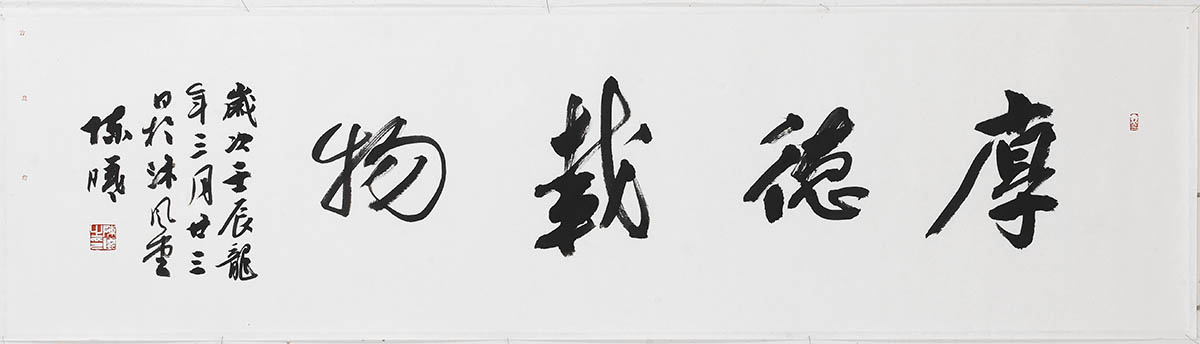 厚德載物
歲次壬辰龍
年三月廿三
日於沐風堂
陳曦